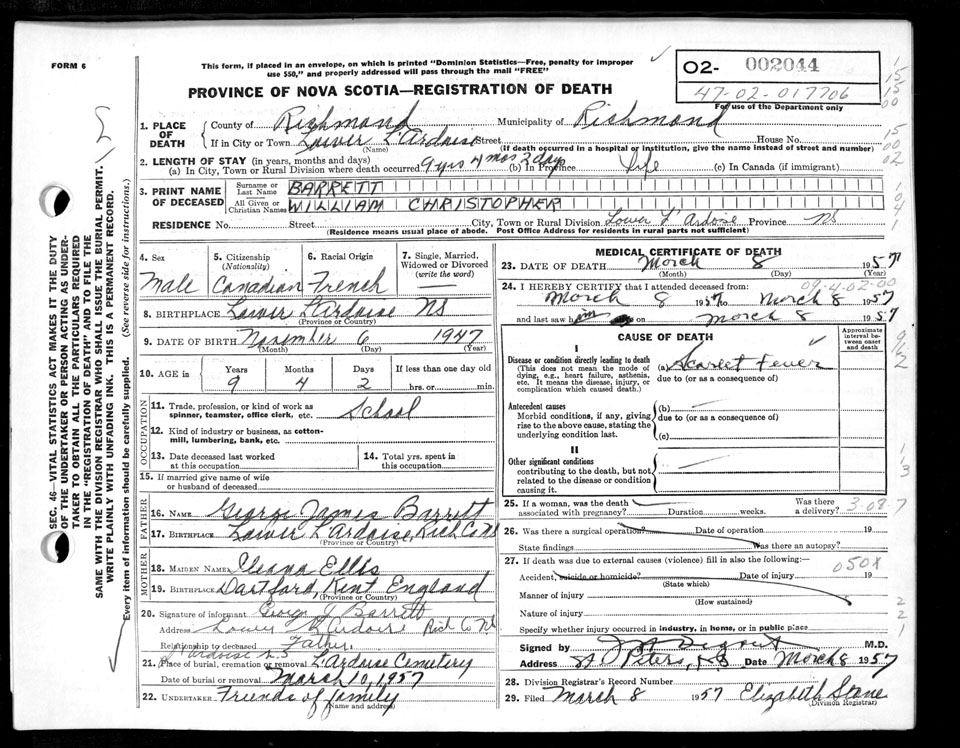 FORM 6
This form, if placed in an envelope, on which is printed "Dominion Statistics—Free, penalty for improper
use $50," and properly addressed will pass through the mail "FREE"
02- 002044
47-02-017706
For use of the Department only
PROVINCE OF NOVA SCOTIA—REGISTRATION OF DEATH
1. PLACE OF DEATH
County of Richmond Municipality of Richmond
If in City or Town Lower L'Ardoise Street House No.
(Name) (If death occurred in a hospital or institution, give the name instead of street and number)
2. LENGTH OF STAY (in years, months and days)
(a) In City, Town or Rural Division where death occurred 9 yrs 4 mos 2 days (b) In Province Life (c) In Canada (if immigrant)
3. PRINT NAME OF DECEASED
Surname or Last Name BARRETT
All Given or Christian Names WILLIAM CHRISTOPHER
RESIDENCE No. Street City, Town or Rural Division Lower L'Ardoise Province NS
(Residence means usual place of abode. Post Office Address for residents in rural parts not sufficient)
4. Sex Male
5. Citizenship (Nationality) Canadian
6. Racial Origin French
7. Single, Married, Widowed or Divorced (write the word) —
8. BIRTHPLACE Lower L'Ardoise NS
(Province or Country)
9. DATE OF BIRTH November 6 1947
(Month) (Day) (Year)
10. AGE in Years 9 Months 4 Days 2 If less than one day old hrs. or min.
OCCUPATION
11. Trade, profession, or kind of work as spinner, teamster, office clerk, etc. School
12. Kind of industry or business, as cotton-mill, lumbering, bank, etc.
13. Date deceased last worked at this occupation
14. Total yrs. spent in this occupation
15. If married give name of wife or husband of deceased
FATHER
16. NAME George James Barrett
17. BIRTHPLACE Lower L'Ardoise Rich Co NS
(Province or Country)
MOTHER
18. MAIDEN NAME Ellbs
19. BIRTHPLACE Dartford, Kent England
(Province or Country)
20. Signature of informant George J Barrett
Address Lower L'Ardoise Rich Co NS
Relationship to deceased Father
21. Place of burial, cremation or removal L'Ardoise Cemetery
Date of burial or removal March 10, 1957
22. UNDERTAKER Friends of family
(Name and address)
MEDICAL CERTIFICATE OF DEATH
23. DATE OF DEATH March 8 1957
(Month) (Day) (Year)
24. I HEREBY CERTIFY that I attended deceased from:
09-4-02-00
March 8 1957 to March 8 1957
and last saw him on March 8 1957
CAUSE OF DEATH
Approximate interval between onset and death
I
Disease or condition directly leading to death (a) Scarlet Fever
(This does not mean the mode of dying, e.g., heart failure, asthenia, etc. It means the disease, injury, or complication which caused death.)
due to (or as a consequence of)
Antecedent causes
Morbid conditions, if any, giving rise to the above cause, stating the underlying condition last.
(b)
due to (or as a consequence of)
(c)
II
Other significant conditions
contributing to the death, but not related to the disease or condition causing it.
25. If a woman, was the death associated with pregnancy? Duration weeks. Was there a delivery?
26. Was there a surgical operation? Date of operation 19
State findings Was there an autopsy?
27. If death was due to external causes (violence) fill in also the following:
050X
Accident, suicide or homicide? Date of injury 19
(State which)
Manner of injury
(How sustained)
Nature of injury
Specify whether injury occurred in industry, in home, or in public place
Signed by M.D.
Address St Peters, NS Date March 8 1957
28. Division Registrar's Record Number
29. Filed March 8 1957 Elizabeth Stone
(Division Registrar)
SEC. 46—VITAL STATISTICS ACT MAKES IT THE DUTY
OF THE UNDERTAKER OR PERSON ACTING AS UNDER-
TAKER TO OBTAIN ALL THE PARTICULARS REQUIRED
IN THE "REGISTRATION OF DEATH" AND TO FILE THE
SAME WITH THE DIVISION REGISTRAR WHO SHALL ISSUE THE BURIAL PERMIT.
WRITE PLAINLY WITH UNFADING INK. THIS IS A PERMANENT RECORD.
Every item of information should be carefully supplied. (See reverse side for instructions.)